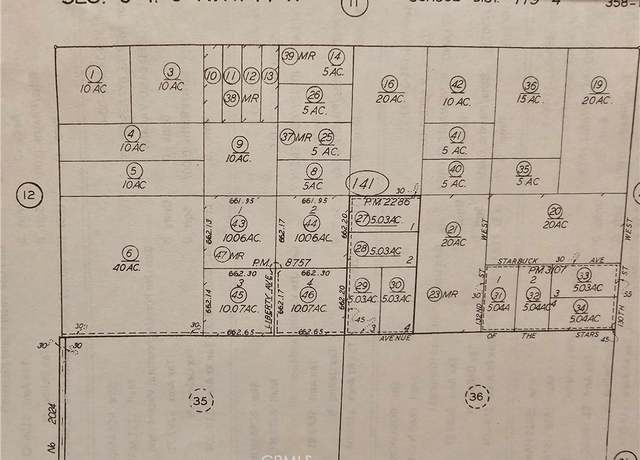 11
12
1
10 AC
3
10 AC
10
11
12
13
38 MR
39 MR
14
5 AC.
26
5 AC.
16
20 AC.
42
10 AC.
36
15 AC.
19
20 AC.
4
10 AC
5
10 AC
9
10 AC.
37 MR
25
5 AC.
8
5 AC
41
5 AC.
40
5 AC.
35
5 AC
141
30
6
40 AC.
661.95
1
43
10.06 AC.
662.13
47 MR
661.95
2
44
10.06 AC.
662.17
662.20
P.M. 8757
662.30
3
45
10.07 AC.
662.14
662.65
LIBERTY AVE.
662.30
4
46
10.07 AC
662.17
662.20
662.65
P.M. 2286
27 5.03 AC.
1
28 5.03 AC.
2
29
5.03 AC.
3
45
30
5.03 AC.
4
23 MR
21
20 AC
20
20 AC.
WEST
WEST
STARBUCK 30 AVE
P.M. 3107
1
31
5.04 A
2
32
5.04 AC
33
5.03 AC.
3
4
34
5.04 AC
30
110TH
35
45
30
30
30
30
AVENUE OF THE STARS
No 2024
35
36